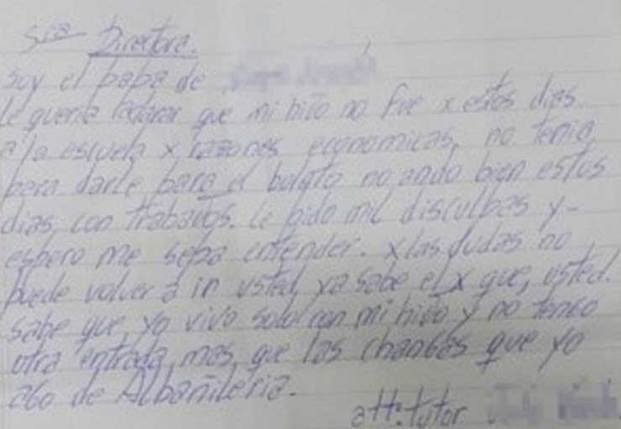 Sra Directora.
Soy el papa de
Le queria aclarar que mi hijo no fue x estos dias
a la escuela x razones economicas, no tenia
para darle para el boleto no ando bien estos
dias con trabajos. Le pido mil disculpas y-
espero me sepa entender. x las dudas no
puede volver a in usted ya sabe el x que, usted.
sabe que yo vivo solo con mi hijo y no tengo
otra entrada, mas que las changas que yo
ago de Albanileria.
att: tutor